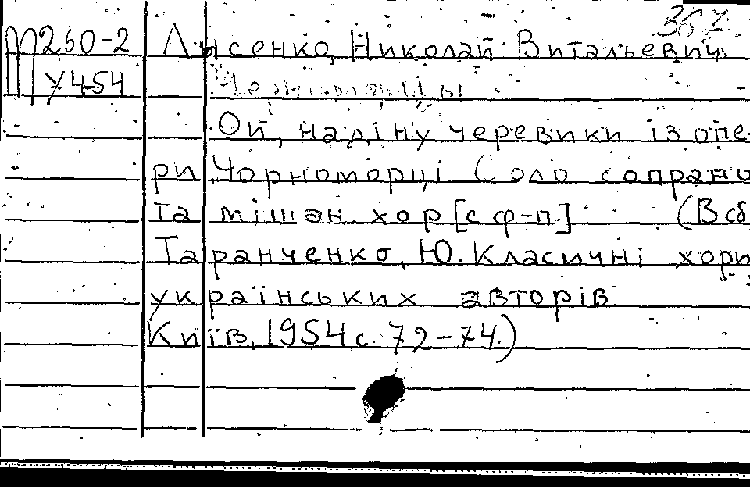 367
М260-2 Лысенко, Николай Витальевич.
У454 Черноморцы
Ой, надіну черевики із опе-
ри Чорноморці Соло сопрано
та мішан. хор [с ф-п] (В сб
Таранченко, Ю. Класичні хори
українських авторів
Київ, 1954 с. 72-74.)